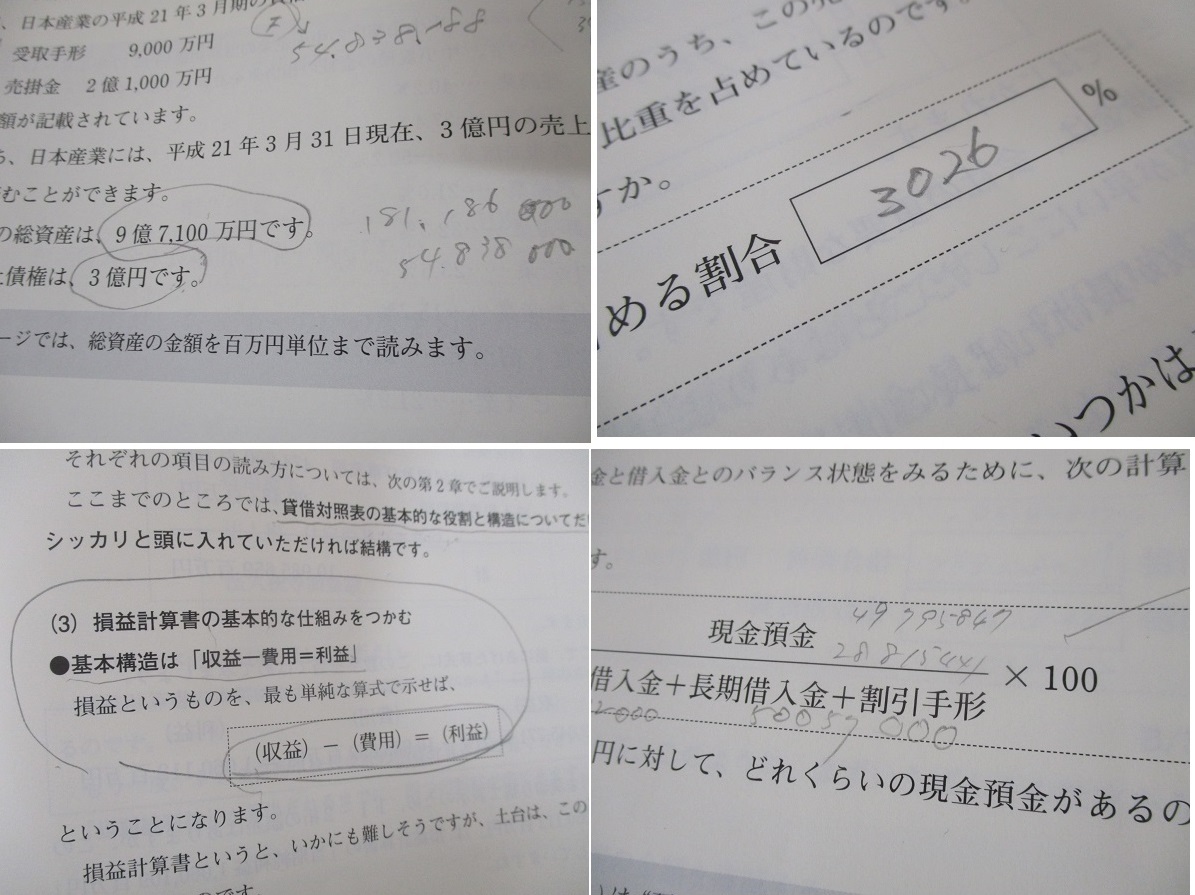 、日本産業の平成21年3月期の貸借
受取手形 9,000万円
54.838,188
売掛金 2億1,000万円
額が記載されています。
、日本産業には、平成21年3月31日現在、3億円の売上
むことができます。
の総資産は、9億7,100万円です。
181,186 000
債権は、3億円です。
54.838 000
ージでは、総資産の金額を百万円単位まで読みます。
産のうち、この
比重を占めているのです。
すか。
める割合 3026 %
いつかは
それぞれの項目の読み方については、次の第2章でご説明します。
ここまでのところでは、貸借対照表の基本的な役割と構造についてだ
シッカリと頭に入れていただければ結構です。
(3) 損益計算書の基本的な仕組みをつかむ
●基本構造は「収益ー費用=利益」
損益というものを、最も単純な算式で示せば、
(収益) − (費用) = (利益)
ということになります。
損益計算書というと、いかにも難しそうですが、土台は、この
です。
金と借入金とのバランス状態をみるために、次の計算
す。
49795847
現金預金 28815441
借入金+長期借入金+割引手形 × 100
50057000
円に対して、どれくらいの現金預金があるの